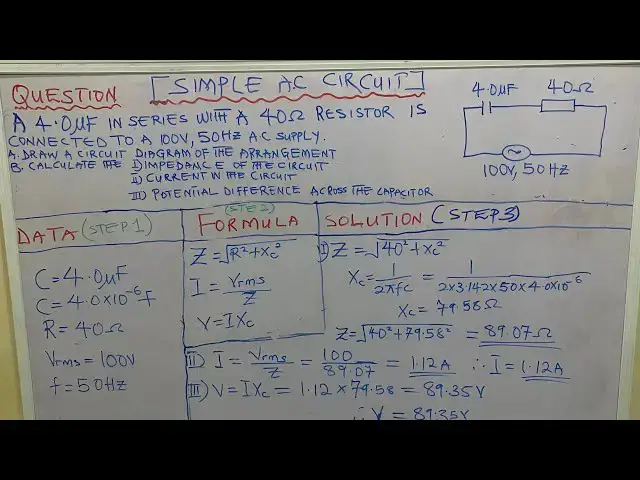 [SIMPLE AC CIRCUIT]
QUESTION
A 4.0µF IN SERIES WITH A 40Ω RESISTOR IS
CONNECTED TO A 100V, 50HZ A.C SUPPLY.
A. DRAW A CIRCUIT DIAGRAM OF THE ARRANGEMENT
B. CALCULATE THE I) IMPEDANCE OF THE CIRCUIT
II) CURRENT IN THE CIRCUIT
III) POTENTIAL DIFFERENCE ACROSS THE CAPACITOR
4.0µF 40Ω
100V, 50HZ
DATA (STEP 1)
C = 4.0µF
C = 4.0×10⁻⁶F
R = 40Ω
Vrms = 100V
f = 50HZ
(STEP 2)
FORMULA
Z = √R²+Xc²
I = Vrms/Z
V = IXc
SOLUTION (STEP 3)
I) Z = √40²+Xc²
Xc = 1/2πfc = 1/2×3.142×50×4.0×10⁻⁶
Xc = 79.58Ω
Z = √40²+79.58² = 89.07Ω
II) I = Vrms/Z = 100/89.07 = 1.12A ∴ I = 1.12A
III) V = IXc = 1.12×79.58 = 89.35V
∴ V = 89.35V